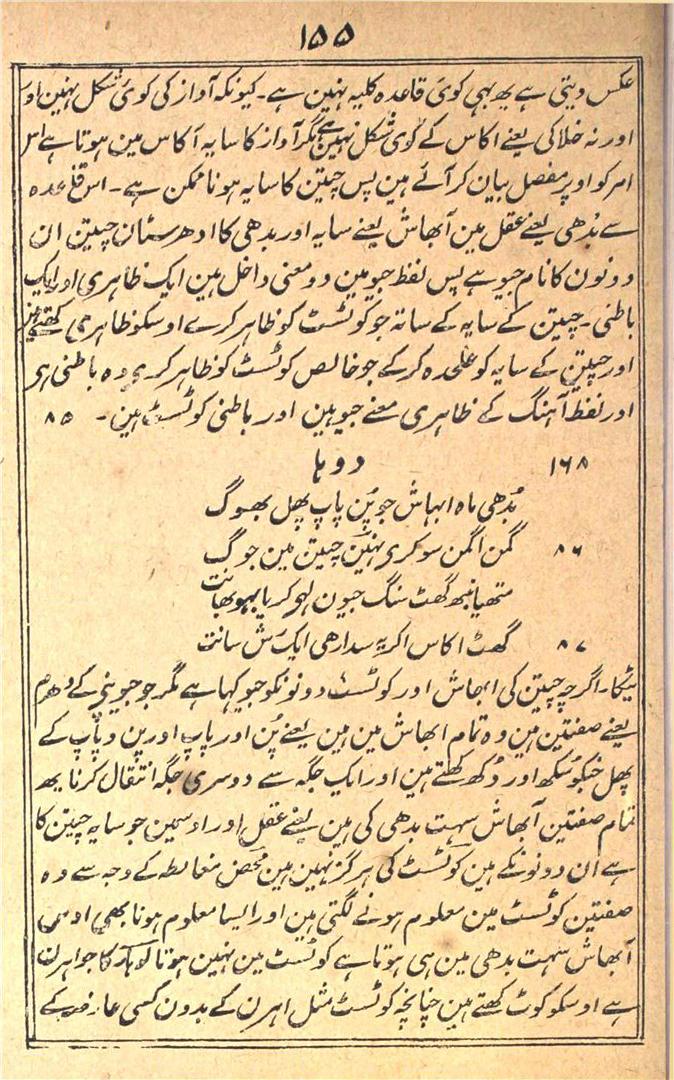 ۱۵۵
عکس دیتی ہے یہ بہی کوئ قاعدہ کلیہ نہین ہے۔ کیونکہ آواز کی کوئ شکل نہین اور
اور نہ خلا کی یعنے اکاس کے کوی شکل نہین ہے مگر آواز کا سایہ آکاس مین ہوتا ہے اس
امر کو اوپر مفصل بیان کر آئے ہین پس چیتن کا سایہ ہونا ممکن ہے۔ اس قاعدہ
سے بُدھی یعنے عقل مین آبھاش یعنے سایہ اور بدھی کا ادھرسٹان چیتن ان
دونون کا نام جیو ہے پس لفظ جیو مین دو معنی داخل ہین ایک ظاہری اور ایک
باطنی۔ چیتن کے سایہ کے ساتہ جو کوٹسٹ کو ظاہر کرے اوسکو ظاہری کہتے ہین
اور چیتن کے سایہ کو علحدہ کر کے جو خالص کوٹسٹ کو ظاہر کری وہ باطنی ہر
اور لفظ آہنگ کے ظاہری معنے جیو ہین اور باطنی کوٹسٹ ہین۔ ۸۵
۱۶۸ دوہا
بُدھی ماہ ابہاش جو پُن پاپ پھل بھوگ
گمن اگمن سو کری نہین چیتن مین جوگ ۸۶
متھیا نبھ گھٹ سنگ جیون لہو کریا بہو بھانت
گھٹ اکاس اکریہ سدا رھی ایک ش سانت ۸۷
ٹیکا۔ اگرچہ چیتن کی ابھاش اور کوٹسٹ دونونکو جیو کہا ہے مگر جو جیو ینی کے دھرم
یعنے صفتین ہین وہ تمام ابھاش مین ہین یعنے پُن اور پاپ اور پن و پاپ کے
پھل جنکو سُکھ اور دُکھ کہتے ہین اور ایک جگہ سے دوسری جگہ انتقال کرنا یہ
تمام صفتین آبھاش سہت بدھی کی ہین یعنے عقل اور اوسمین جو سایہ چیتن کا
ہے ان دونونکے ہین کوٹسٹ کی ہرگز نہین ہین محض مغالطہ کے وجہ سے وہ
صفتین کوٹسٹ مین معلوم ہونے لگتی ہین اور ایسا معلوم ہونا بھی اوسی
آبھاش سہت بدھی مین ہی ہوتا ہے کوٹسٹ مین نہین ہوتا لوہار کا جو اہرن
ہے اوسکو کوٹ کہتے ہین چنانچہ کوٹسٹ مثل اہرن کے بدون کسی عارضہ کے